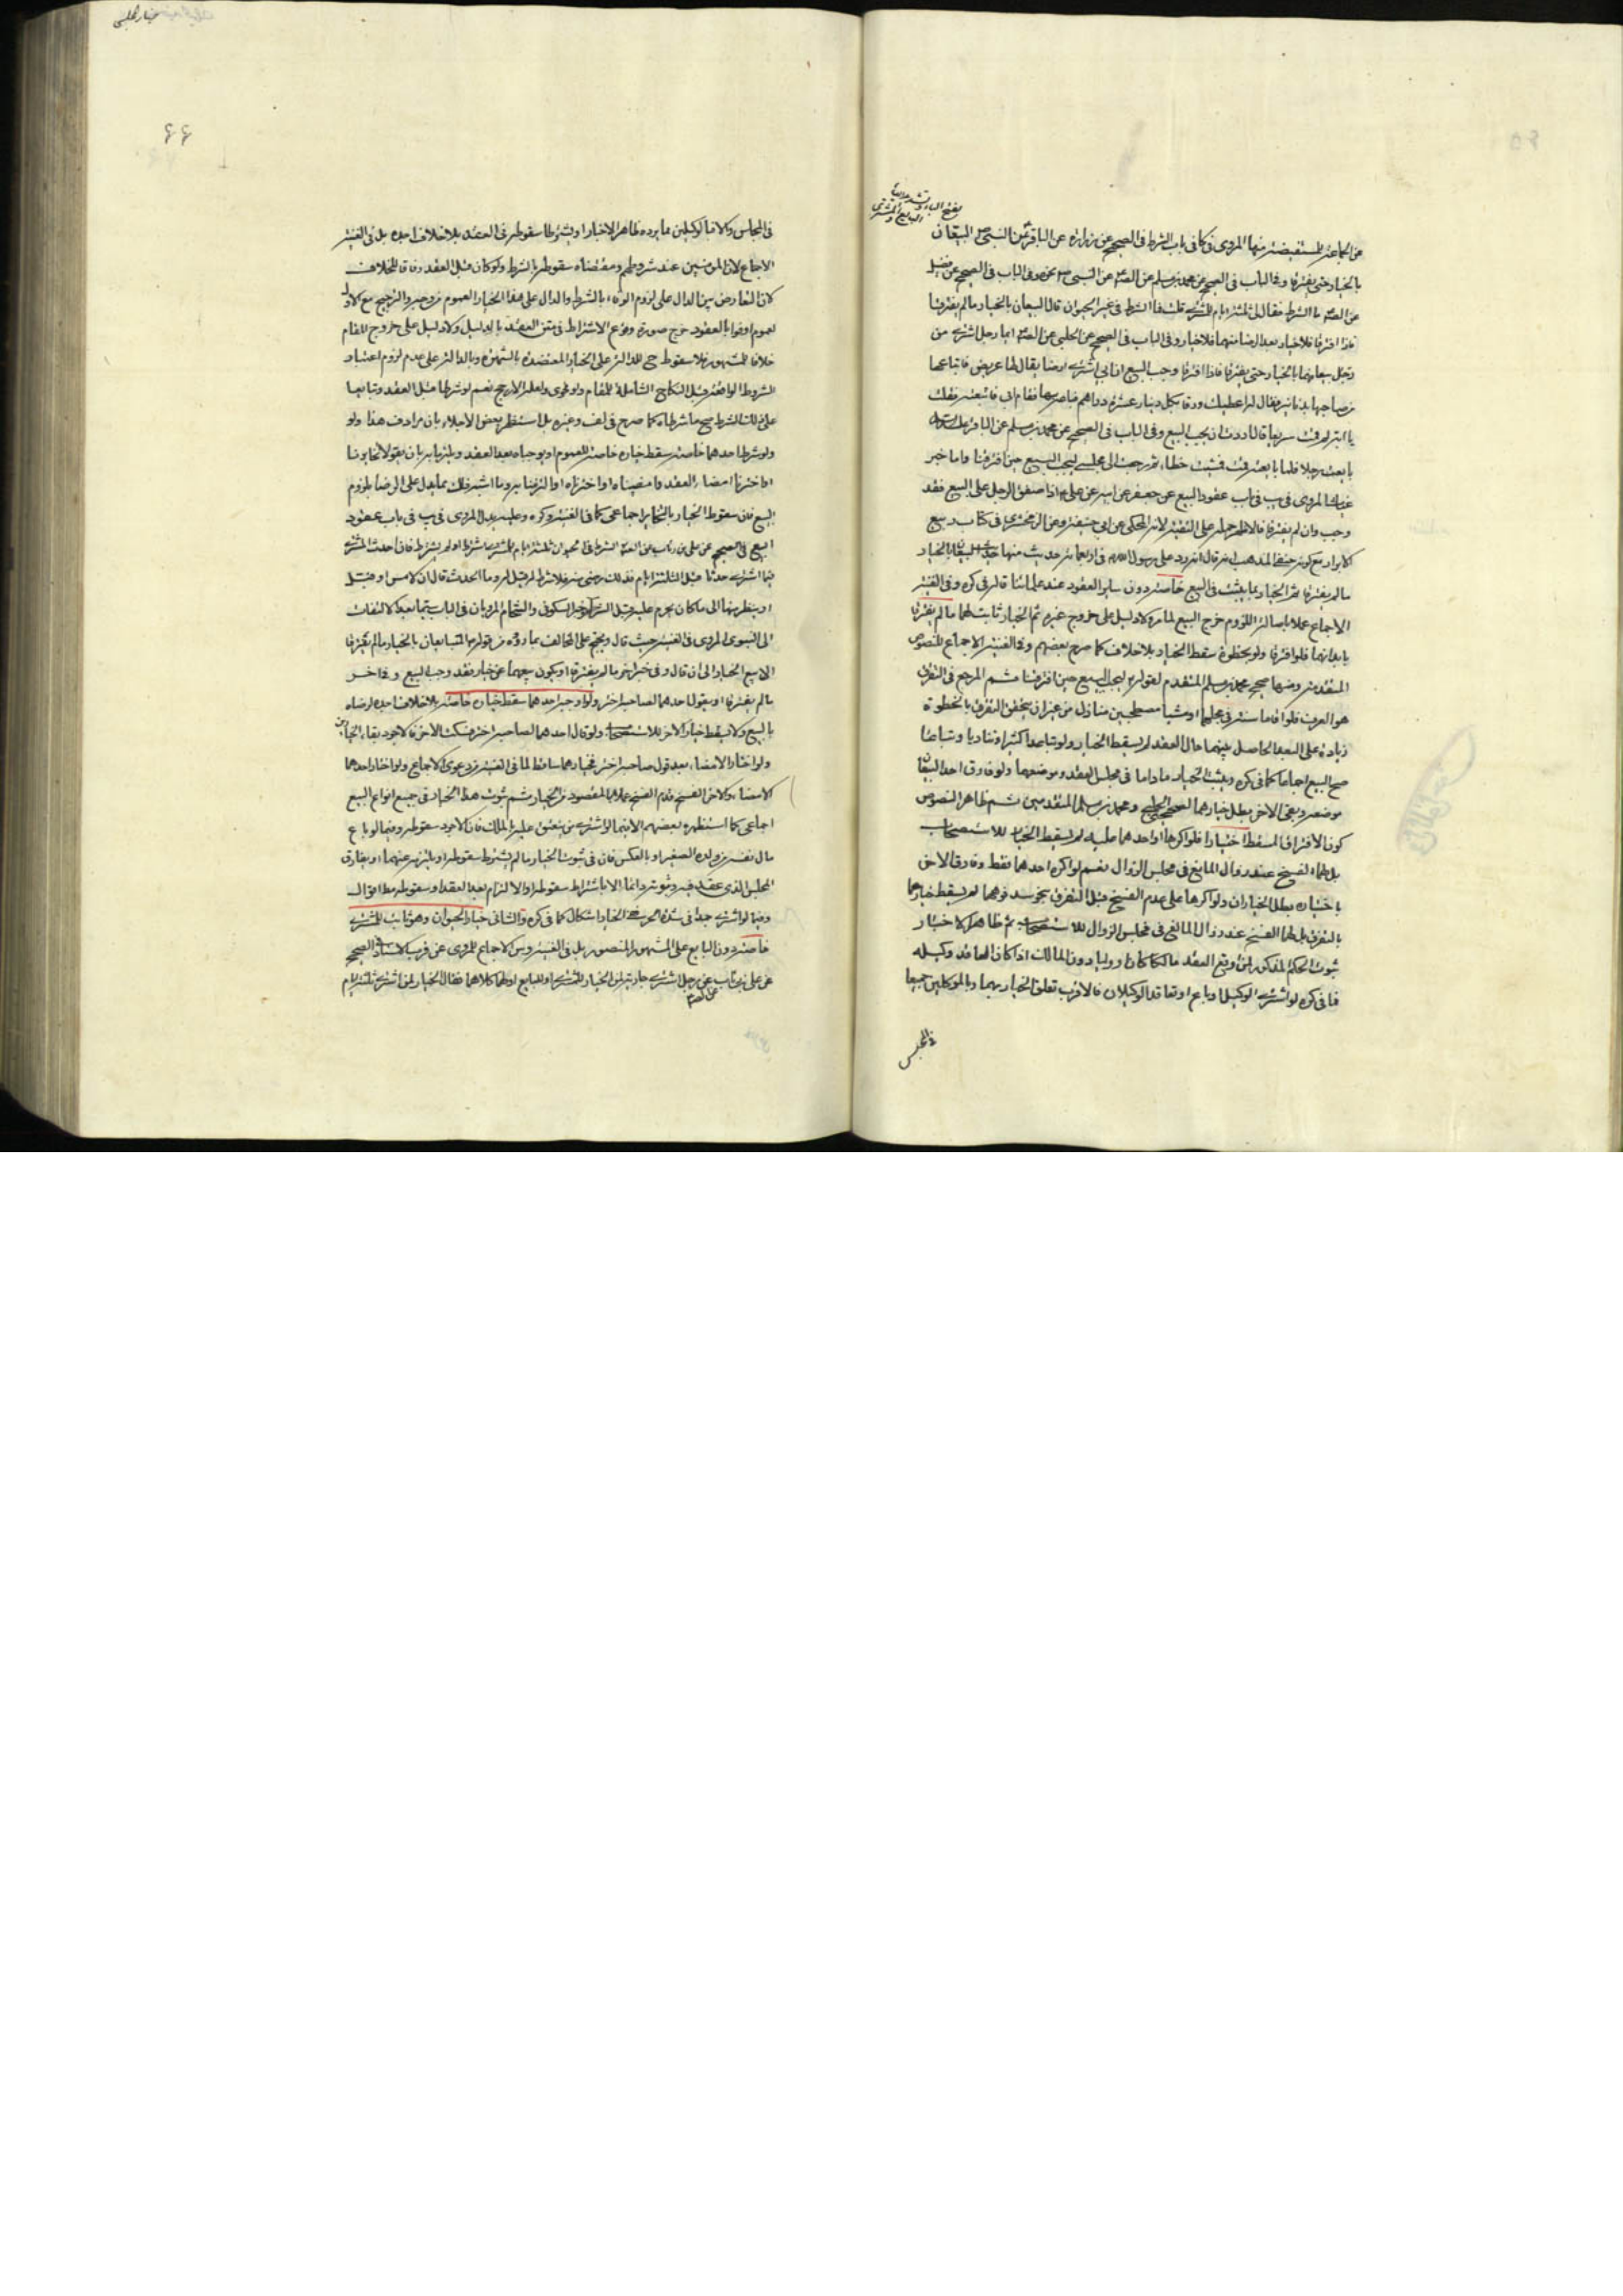 بفتح الباء وتشديد الياء
البايع والمشتري
عن الجماعة المستفيضة منها المروي في كا في باب الشرط في الصحيح عن زرارة عن الباقر عن النبي ص البيعان
بالخيار حتى يفترقا وفي الباب في الصحيح عن محمد بن مسلم عن الص عن النبي ص نحوه وفي الباب في الصحيح عن فضيل
عن الص ما الشرط فقال لي ثلثة ايام للمشتري قلت فما الشرط في غير الحيوان قال البيعان بالخيار ما لم يفترقا
فاذا افترقا فلا خيار بعد الرضا منهما فلا خيار وفي الباب في الصحيح عن الحلبي عن الص ايما رجل اشترى من
رجل بيعا فهما بالخيار حتى يفترقا فاذا افترقا وجب البيع ان ابي اشترى ارضا يقال لها عريض فابتاعها
من صاحبها بدنانير فقال له اعطيك ورقا بكل دينار عشرة دراهم فباعه بها فقام ابي فاتبعته فقلت
يا ابه لم قمت سريعا قال اردت ان يجب البيع وفي الباب في الصحيح عن محمد بن مسلم عن الباقر
بايعت رجلا فلما بايعته قمت فمشيت خطاء ثم رجعت الى مجلسي ليجب البيع حين افترقنا واما خبر
غياث المروي في يب في باب عقود البيع عن جعفر عن ابيه عن علي ع اذا صفق الرجل على البيع فقد
وجب وان لم يفترقا فالاظهر حمله على التقية لانه المحكي عن ابي حنيفة وعن الزمخشري في كتاب ربيع
الابرار مع كونه حنفي المذهب انه قال انه رد على رسول الله ص في اربعمائة حديث منها حديث البيعان بالخيار
ما لم يفترقا ثم الخيار بما يثبت في البيع خاصة دون ساير العقود عند علمائنا قاله في كره وفي الغنية
الاجماع عملا باصالة اللزوم خرج البيع لما مر ولا دليل على خروج غيره ثم الخيار ثابت لهما ما لم يفترقا
بابدانهما فلو افترقا ولو بخطوة سقط الخيار بلا خلاف كما صرح بعضهم وفي الغنية الاجماع للنصوص
المتقدمة ومنها صحيح محمد بن مسلم المتقدم لقوله ليجب البيع حين افترقنا ثم المرجع في التفرق
هو العرف فلو اقاما سنة في مجلسهما او مشيا مصطحبين منازل من غير ان يتحقق التفرق بالخطوة
زيادة على البعد الحاصل بينهما حال العقد لم يسقط الخيار ولو تباعدا كثيرا وتناديا وتبايعا
صح البيع اجماعا كما في كره ويثبت الخيار ما داما في مجلس العقد وموضعهما ولو فارق احد البيعان
موضعه وبقي الاخر بطل خيارهما لصحيح الحلبي ومحمد بن مسلم المتقدمين ثم ظاهر النصوص
كون الافتراق المسقط اختيارا فلو اكرها او احدهما عليه لم يسقط الخيار للاستصحاب
بل لهما الفسخ عند زوال المانع في مجلس الزوال نعم لو اكره احدهما فقط وفارق الاخر
باختياره بطل الخياران ولو اكرها على عدم الفسخ قبل التفرق بنحو سد فوهما لم يسقط خيارهما
بالتفرق بل لهما الفسخ عند زوال المانع في مجلس الزوال للاستصحاب ثم ظاهر الاخبار
ثبوت الحكم المذكور لمن وقع العقد مالكا كان او وليا دون المالك اذا كان العاقد وكيله
فما في كره لو اشترى الوكيل او باع او تعاقد الوكيلان فالاقرب تعلق الخيار بهما وبالموكلين جميعا
في المجلس
خيار المجلس
۶۶
في المجلس والا فبالوكيلين مما يرده ظاهر الاخبار او يشترطا سقوطه في العقد بلا خلاف اجده بل في الغنية
الاجماع لان المؤمنين عند شروطهم ومقتضاه سقوطه بالشرط ولو كان قبل العقد وفاقا للخلاف
لان التعارض بين الدال على لزوم الوفاء بالشرط والدال على هذا الخيار العموم من وجه والترجيح مع الاول
لعموم اوفوا بالعقود خرج صورة وقوع الاشتراط في متن العقد بالدليل ولا دليل على خروج المقام
خلافا للمشهور فلا سقوط ح للدلالة على الخيار المعتضدة بالشهرة وبالدالة على عدم لزوم اعتبار
الشروط الواقعة قبل النكاح الشاملة للمقام ولو فحوى ولعله الارجح نعم لو شرطا قبل العقد وتبايعا
على ذلك الشرط صح ما شرطاه كما صرح في لف وغيره بل استظهر بعض الاجلاء بان مرادف هذا ولو
ولو شرط احدهما خاصة سقط خياره خاصة للعموم او يوجباه بعد العقد ويلتزما به بان يقولا تخايرنا
او اخترنا امضاء العقد وامضيناه او اخترناه او التزمنا به وما اشبه ذلك مما يدل على الرضا بلزوم
البيع فان سقوط الخيار بالتخاير اجماعي كما في الغنية وكره وعليه يدل المروي في يب في باب عقود
البيع في الصحيح عن علي بن رئاب عن الص الشرط في الحيوان ثلثة ايام للمشتري شرط او لم يشترط فان احدث المشتري
فيما اشترى حدثا قبل الثلثة ايام فذلك رضى منه فلا شرط له قيل له وما الحدث قال ان لامس او قبل
او ينظر منها الى ما كان يحرم عليه قبل الشراء وخبر السكوني والشحام المرويان في الباب
الى النبوي المروي في الغنية حيث قال ويحتج على المخالف بما رووه من قوله ص المتبايعان بالخيار ما لم يفترقا
الا بيع الخيار الى ان قال وفي خبر اخر ما لم يفترقا او يكون بيعهما عن خيار فقد وجب البيع وفي اخر
ما لم يفترقا او يقول احدهما لصاحبه اختر ولو اوجبه احدهما سقط خياره خاصة بلا خلاف اجده لرضاه
بالبيع ولا يسقط خيار الاخر للاستصحاب ولو قال احدهما لصاحبه اختر فسكت الاخر فالاجود بقاء الخيارين
ولو اختار الامضاء بعد قول صاحبه اختر فخيارهما ساقط لما في الغنية من دعوى الاجماع ولو اختار احدهما
الامضاء والاخر الفسخ قدم الفسخ عملا بالمقصود من الخيار ثم ثبوت هذا الخيار في جميع انواع البيع
اجماعي كما استظهره بعضهم الا فيما لو اشترى من ينعتق عليه بالملك فان الاجود سقوطه وفيما لو باع
مال نفسه من ولده الصغير او بالعكس فان في ثبوت الخيار ما لم يشترط سقوطه او يلتزم عنهما او يفارق
المجلس الذي عقد فيه وثبوته دائما الا باشتراط سقوطه او الالتزام بعد العقد وسقوطه مط اقوال
وفيما لو اشترى جمدا في شدة الحر ففي الخيار اشكال كما في كره والثاني خيار الحيوان وهو ثابت للمشتري
خاصة دون البايع على المشهور المنصور بل في الغنية وس الاجماع للمروي عن قرب الاسناد الصحيح
عن علي بن رئاب عن رجل اشترى جارية لمن الخيار للمشتري او للبايع او لهما كلاهما فقال الخيار لمن اشترى ثلثة ايام